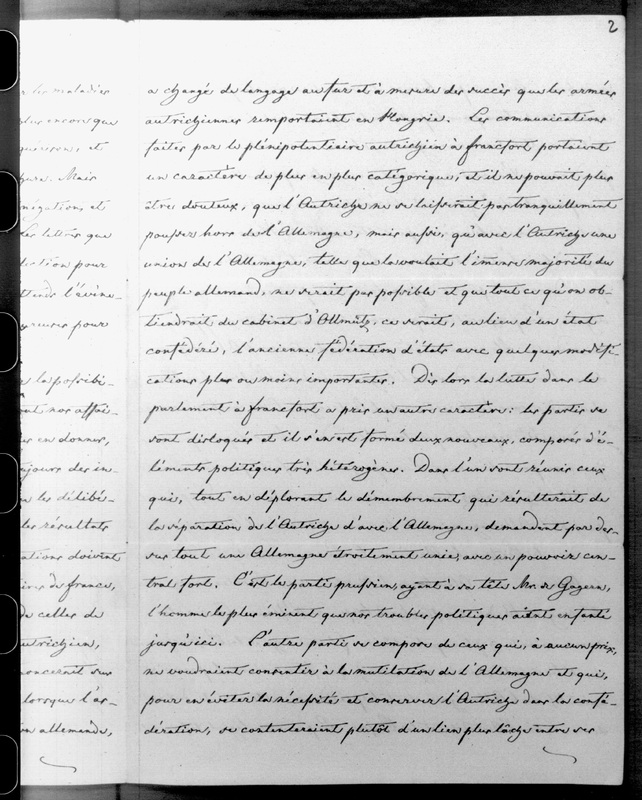 2
r les maladies
plus encore que
guerison, et
hure. Mais
négation, et
Les lettres que
diction pour
ttends l'évène-
yreuses pour
e la possibi-
ont nos affai-
es en donner,
ujours des in-
n les délibé-
les résultats
ations doivent
ires de france,
de celles de
utrichien,
oncernait sur
lorsque l'as-
on allemande,
a changé de langage au fur et à mesure des succès que les armées
autrichiennes remportaient en Hongrie. Les communications
faites par le plénipotentiaire autrichien à francfort portaient
un caractère de plus en plus catégorique, et il ne pouvait plus
être douteux, que l'Autriche ne se laisserait pas tranquillement
pousser hors de l'Allemagne, mais aussi, qu'avec l'Autriche une
union de l'Allemagne, telle que la voulait l'imense majorité du
peuple allemand, ne serait pas possible et que tout ce qu'on ob-
tiendrait du cabinet d'Ollmütz, ce serait, au lieu d'un état
confédéré, l'ancienne fédération d'états avec quelques modifi-
cations plus ou moins importantes. Dès lors la lutte dans le
parlement à francfort a pris un autre caractère: les partis se
sont disloqués et il s'en est formé deux nouveaux, composés d'é-
léments politiques très hétérogènes. Dans l'un sont réunis ceux
qui, tout en déplorant le démembrement qui résulterait de
la séparation de l'Autriche d'avec l'Allemagne, demandent par des-
sus tout une Allemagne étroitement unie, avec un pouvoir cen-
tral fort. C'est le parti prussien, ayant à sa tête Mr. de Gagern,
l'homme le plus éminent que nos troubles politiques aient enfanté
jusqu'ici. L'autre parti se compose de ceux qui, à aucun prix,
ne voudraient consentir à la mutilation de l'Allemagne et qui,
pour en éviter la nécessité et conserver l'Autriche dans la confé-
dération, se contenteraient plutôt d'un lien plus lâche entre ses